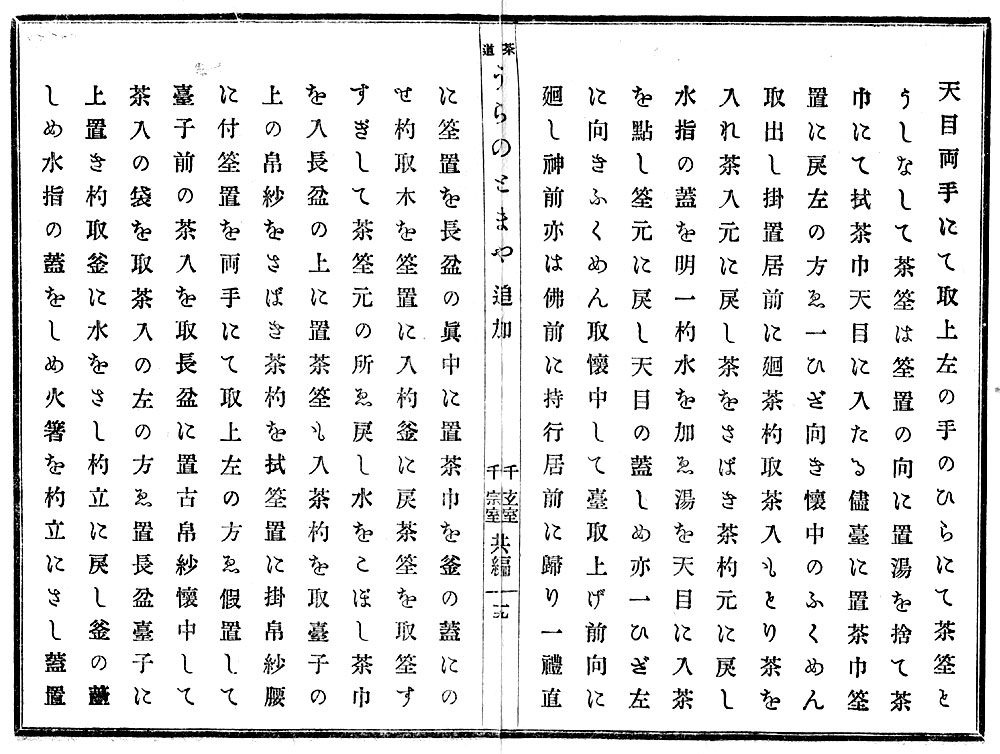 天目両手にて取上左の手のひらにて茶筌と
うしなして茶筌は筌置の向に置湯を捨て茶
巾にて拭茶巾天目に入たる儘臺に置茶巾筌
置に戻左の方ゑ一ひざ向き懐中のふくめん
取出し掛置居前に廻茶杓取茶入もとり茶を
入れ茶入元に戻し茶をさばき茶杓元に戻し
水指の蓋を明一杓水を加ゑ湯を天目に入茶
を點し筌元に戻し天目の蓋しめ亦一ひざ左
に向きふくめん取懐中して臺取上げ前向に
廻し神前亦は佛前に持行居前に歸り一禮直
茶道 うらのとまや 追加 千玄室 千宗室 共編 一五
に筌置を長盆の眞中に置茶巾を釜の蓋にの
せ杓取水を筌置に入杓釜に戻茶筌を取筌す
すぎして茶筌元の所ゑ戻し水をこぼし茶巾
を入長盆の上に置茶筌も入茶杓を取臺子の
上の帛紗をさばき茶杓を拭筌置に掛帛紗腰
に付筌置を両手にて取上左の方ゑ假置して
臺子前の茶入を取長盆に置古帛紗懐中して
茶入の袋を取茶入の左の方ゑ置長盆臺子に
上置き杓取釜に水をさし杓立に戻し釜の蓋
しめ水指の蓋をしめ火箸を杓立にさし蓋置